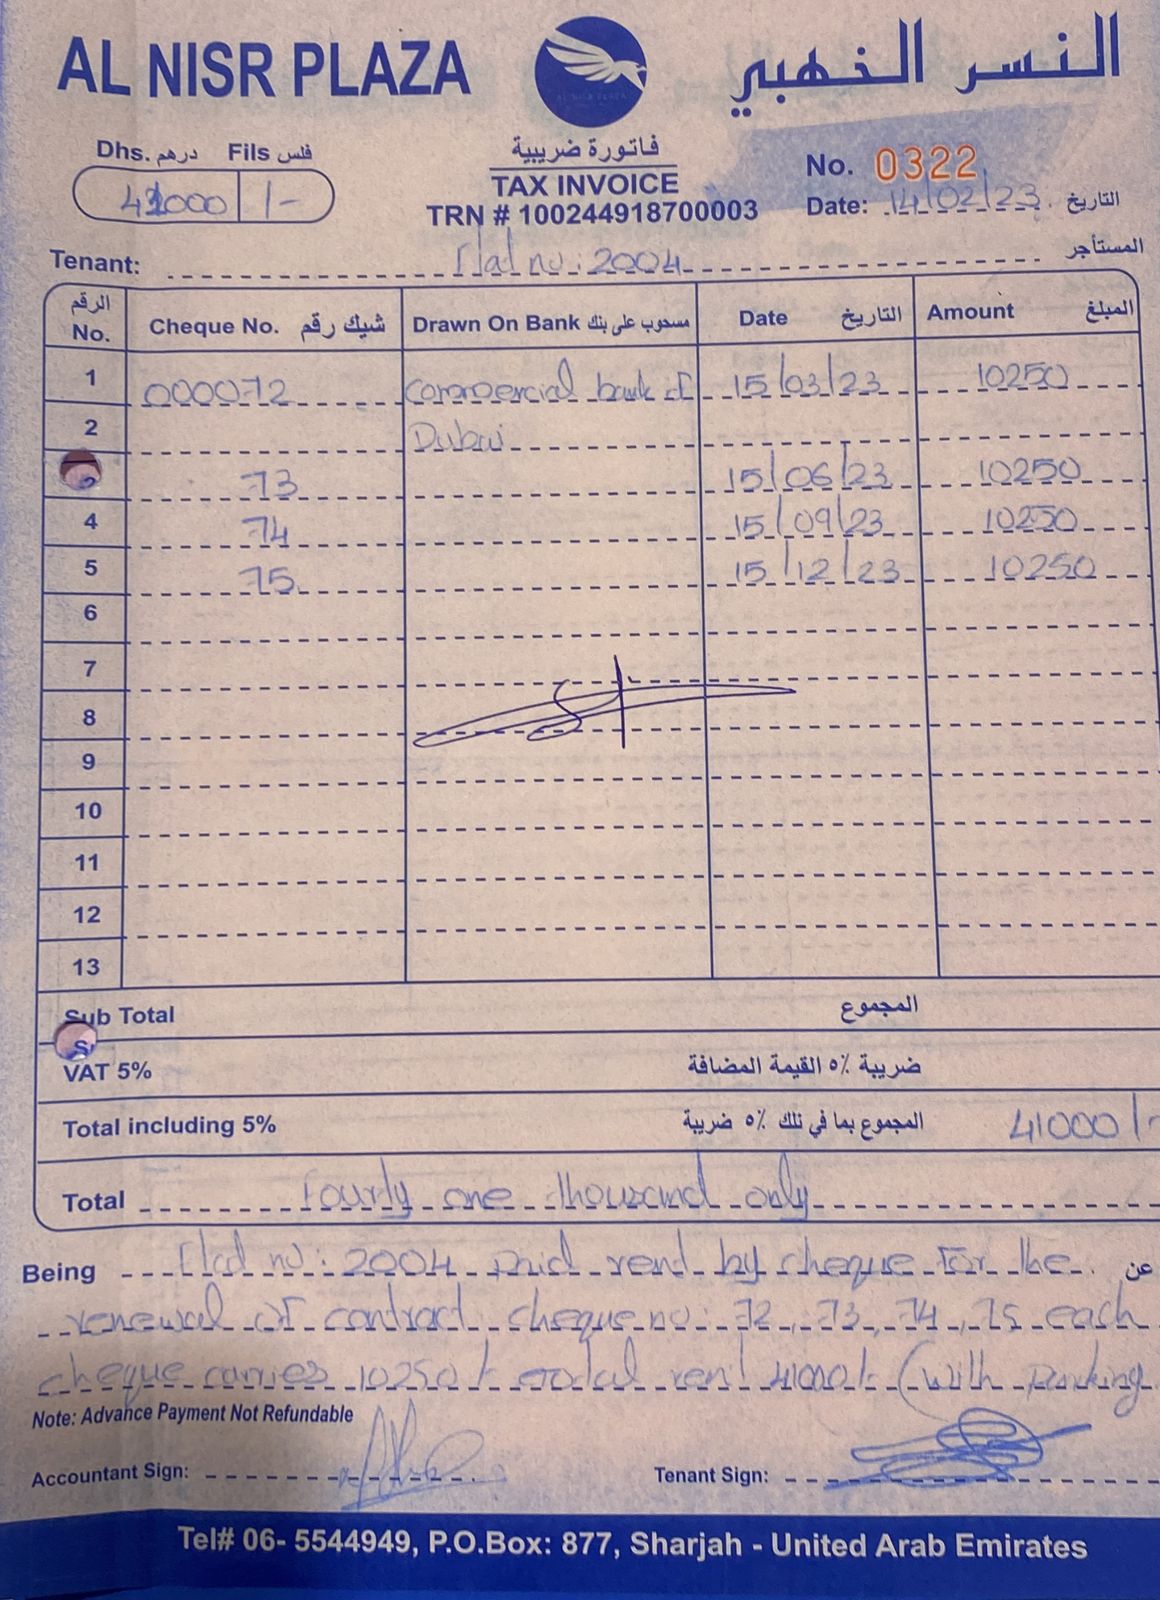 AL NISR PLAZA
AL NISR PLAZA
النسر الذهبي
Dhs. درهم Fils فلس
41000 /-
فاتورة ضريبية
TAX INVOICE
TRN # 100244918700003
No. 0322
Date: 14/02/23 التاريخ
Tenant: Flat no: 2004 المستأجر
الرقم No. Cheque No. شيك رقم Drawn On Bank مسحوب على بنك Date التاريخ Amount المبلغ
1 000072 Commercial bank of 15/03/23 10250
2 Dubai
73 15/06/23 10250
4 74 15/09/23 10250
5 75 15/12/23 10250
6
7
8
9
10
11
12
13
Sub Total المجموع
VAT 5% ضريبة ٥٪ القيمة المضافة
Total including 5% المجموع بما في ذلك ٥٪ ضريبة 41000/-
Total Fourty one thousand only
Being Flat no: 2004 paid rent by cheque for the عن
renewal of contract cheque no: 72, 73, 74, 75 each
cheque carries 10250/- total rent 41000/- (with parking
Note: Advance Payment Not Refundable
Accountant Sign: Tenant Sign:
Tel# 06- 5544949, P.O.Box: 877, Sharjah - United Arab Emirates